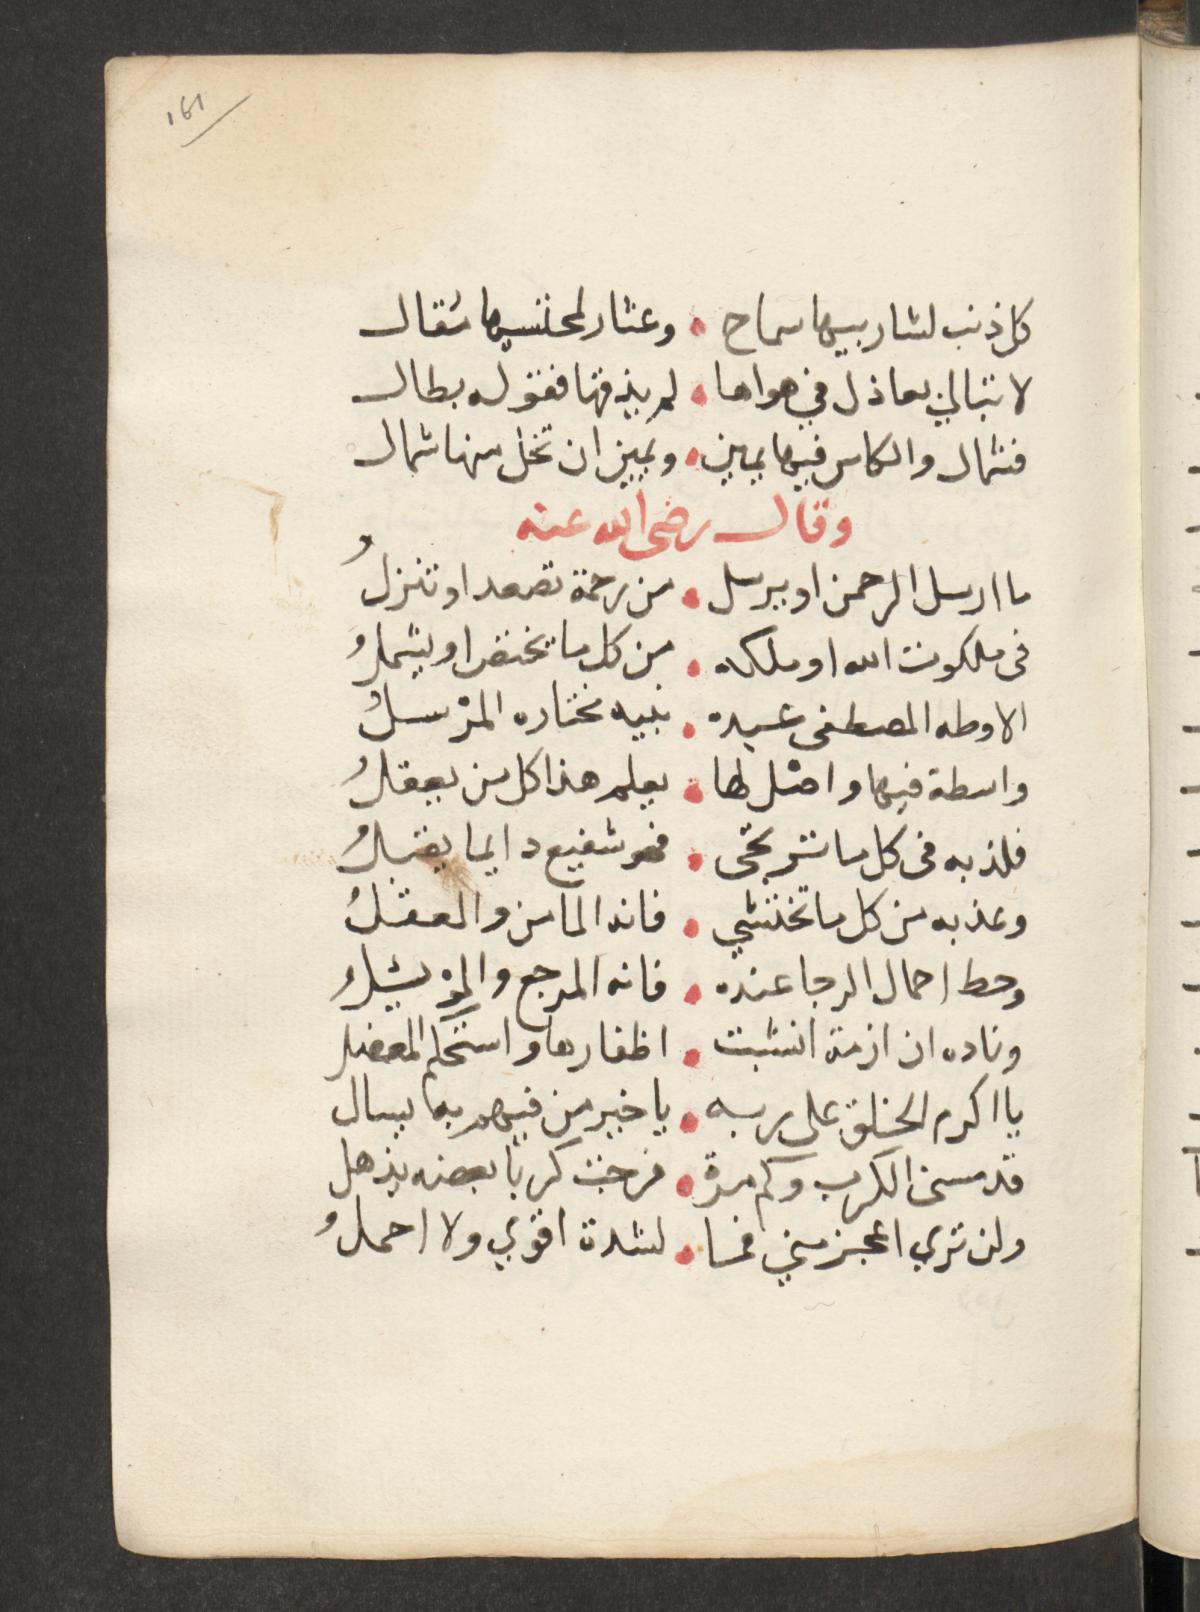 161
كل ذنب لشاربيها سماح • وعثار لمحتسيها مقال
لا تبالي بعاذل في هواها • لم يذقها فقوله بطال
فشمال والكاس فيها يمين • ويمين ان تخل منها شمال
وقال رضى الله عنه
ما ارسل الرحمن او يرسل • من رحمة تصعد او تنزلُ
فى ملكوت الله او ملكه • من كل ما تختص او يشملُ
الا وطه المصطفى عبده • نبيه مختاره المرْسلُ
واسطة فيها واصل لها • يعلم هذا كل من يعقلُ
فلذ به فى كل ما ترتجى • فهو شفيع دايما يقبلُ
وعذ به من كل ما تختشي • فانه المامن والمعقلُ
وحط احمال الرجا عنده • فانه المرجع والموْيلُ
وناده ان ازمة انشبت • اظفارها واستحكم المعضل
يا اكرم الخلق على ربه • يا خير من فيهم بها يسال
قد مسنى الكرب وكم مرة • فرجت كربا بعضه يذهل
ولن تري اعجز مني فما • لشدة اقوي ولا احملُ